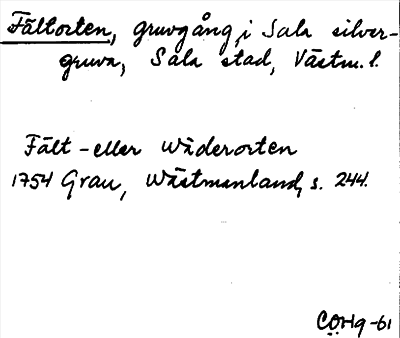 Fältorten, gruvgång, i Sala silver-
gruva, Sala stad, Västm. l.
Fält - eller Wäderorten
1754 Grau, Wästmanland, s. 244.
COHg -61